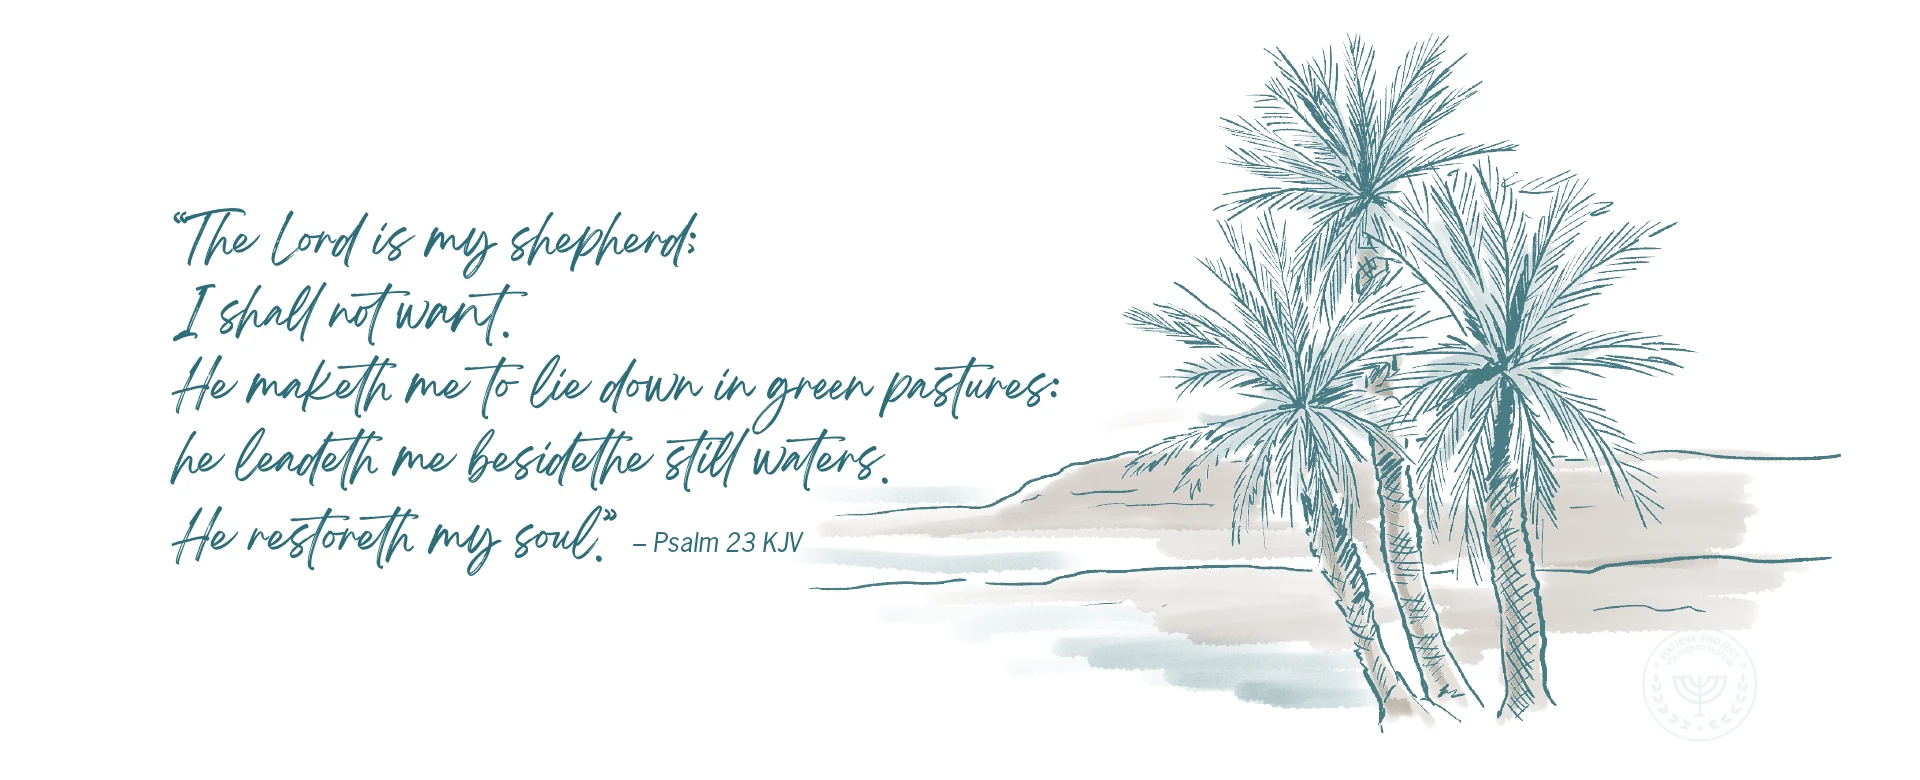 “The Lord is my shepherd;
I shall not want.
He maketh me to lie down in green pastures:
he leadeth me besidethe still waters.
He restoreth my soul.” – Psalm 23 KJV
HATIKVA PROJECT